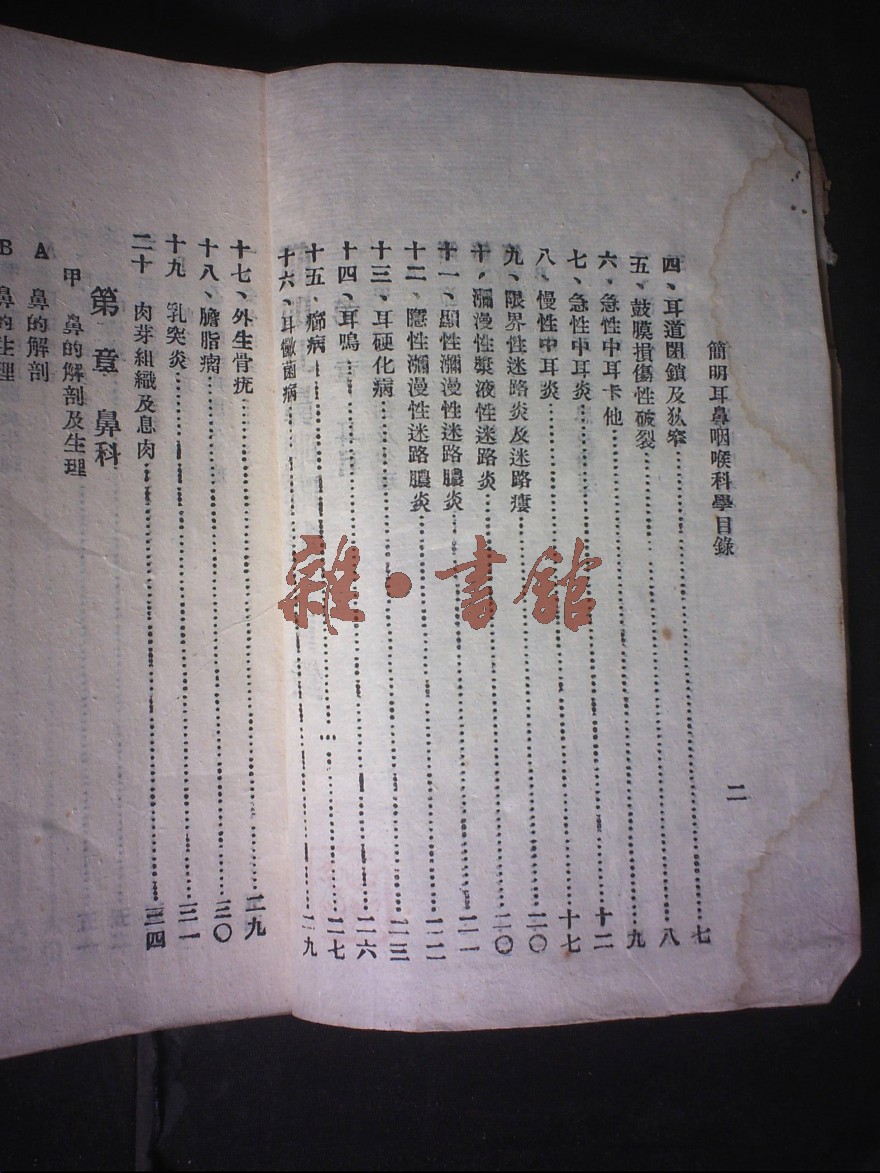 簡明耳鼻咽喉科學目錄
二
四、耳道閉鎖及狄窄 七
五、鼓膜損傷性破裂 八
六、急性中耳卡他 九
七、急性中耳炎 十二
八、慢性中耳炎 十七
九、限界性迷路炎及迷路瘻 二〇
十、瀰漫性漿液性迷路炎 二〇
十一、顯性瀰漫性迷路膿炎 二一
十二、隱性瀰漫性迷路膿炎 二二
十三、耳硬化病 二三
十四、耳鳴 二六
十五、病 二七
十六、耳黴菌病 二九
十七、外生骨疣 二九
十八、膽脂瘤 三〇
十九 乳突炎
二十 肉芽組織及息肉 三四
第 章 鼻科
甲 鼻的解剖及生理
A 鼻的解剖
B 鼻的生理
雜·書館